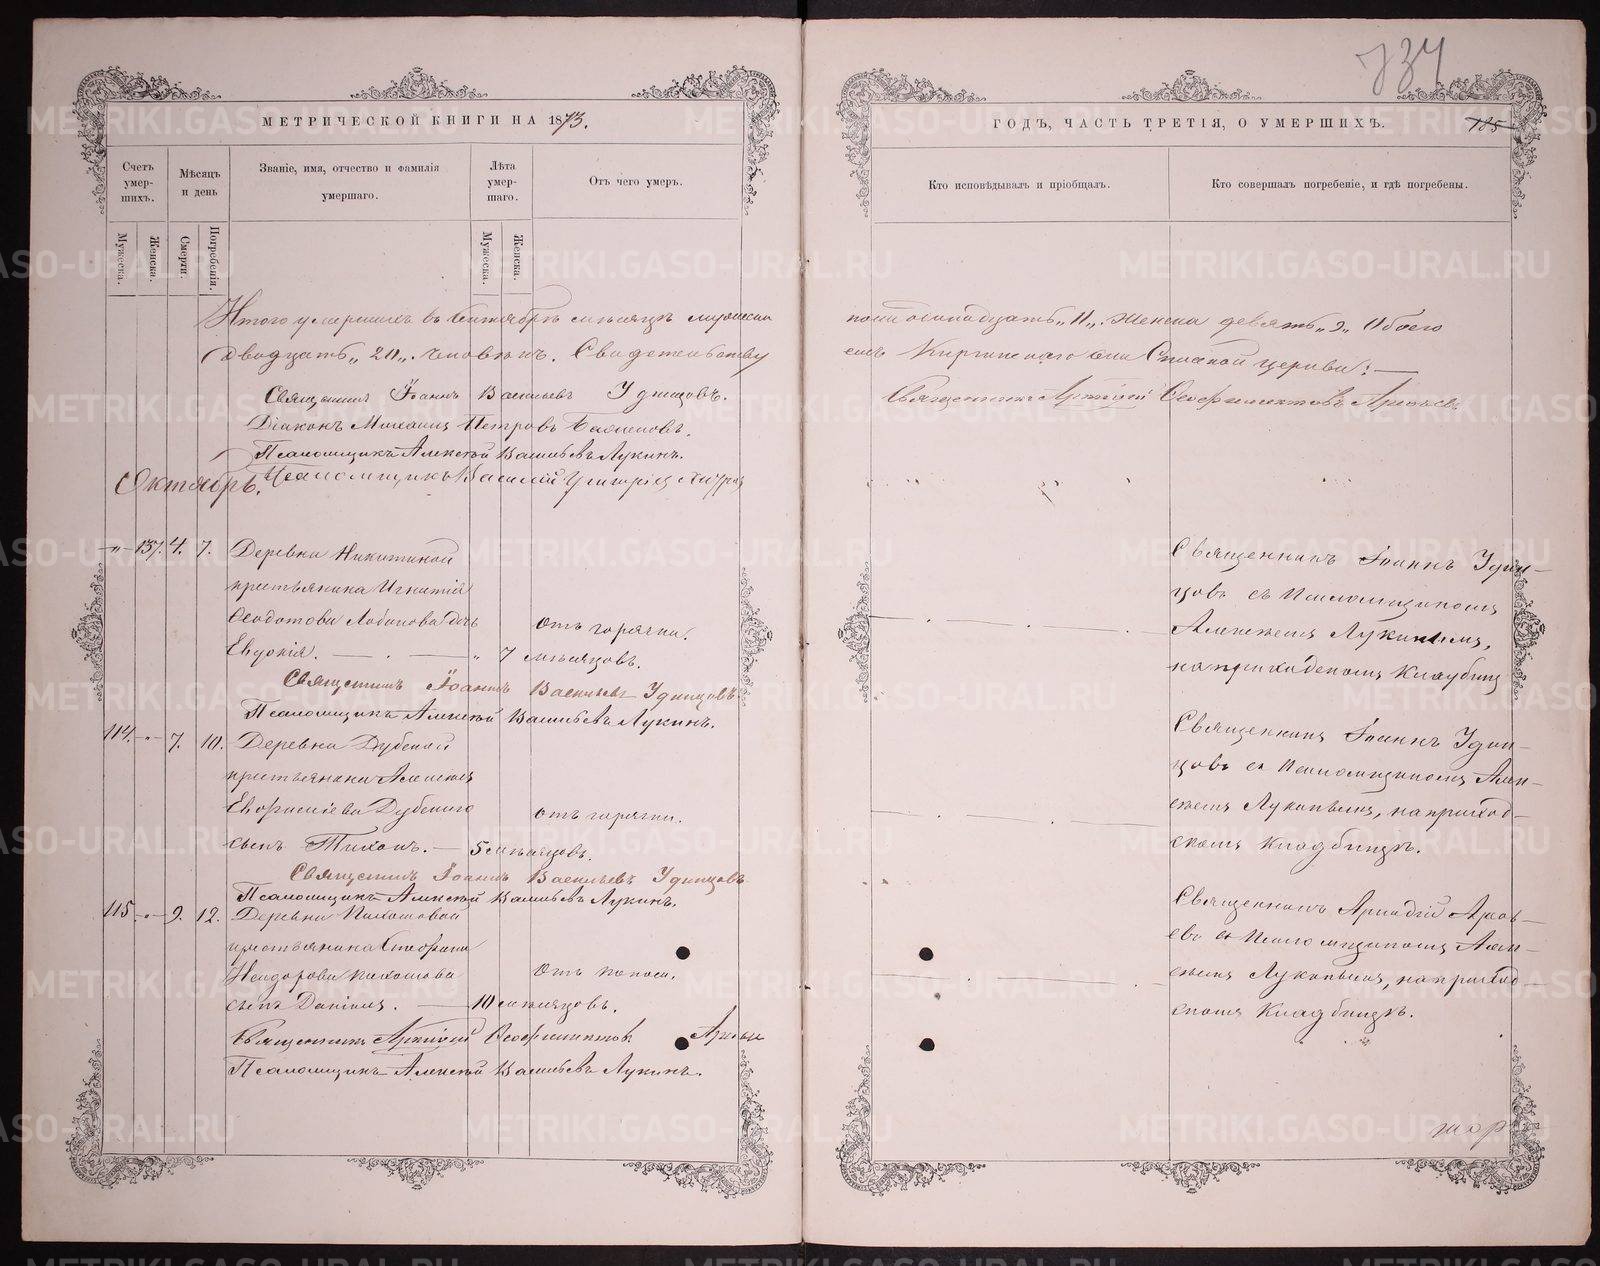 734
МЕТРИЧЕСКОЙ КНИГИ НА 1873.
ГОДЪ, ЧАСТЬ ТРЕТІЯ, О УМЕРШИХЪ.
185
Счетъ умер-шихъ.
Мѣсяцъ и день
Званіе, имя, отчество и фамилія умершаго.
Лѣта умер-шаго.
Отъ чего умеръ.
Кто исповѣдывалъ и пріобщалъ.
Кто совершалъ погребеніе, и гдѣ погребены.
Мужеска.
Женска.
Смерти.
Погребенія.
Мужеска.
Женска.
Итого умершихъ въ Сентябрѣ мѣсяцѣ мужеска
пола одинадцать „11„. женска девять „9„ Обоего
двадцать„ 20„. человѣкъ. Свидетельству
емъ Киргинскаго села Спаской церкви:—
Священникъ Іоаннъ Васильевъ Удинцовъ.
Священникъ Аркадій Феофилактовъ
Діаконъ Михаилъ Петровъ
Псаломщикъ Алексѣй Васильевъ Лукинъ.
Октябрь.
Псаломщикъ Василій
„ 137. 4. 7. Деревни Никитиной
крестьянина Игнатія
Ѳеодотова Лобанова дочь
Евдокія. — „ 7 мѣсяцовъ.
отъ горячки.
Священникъ Іоаннъ Удин-
цовъ съ Псаломщикомъ
Алексѣемъ Лукинымъ,
на приходскомъ Кладбищ
Священникъ Іоаннъ Васильевъ Удинцовъ
Псаломщикъ Алексѣй Васильевъ Лукинъ.
114. „ 7. 10. Деревни Дубской
крестьянина Алексѣя
Дубскаго
сынъ Тихонъ. — 5 мѣсяцовъ.
отъ горячки.
Священникъ Іоаннъ Удин-
цовъ съ Псаломщикомъ Алек-
сѣемъ Лукинымъ, на приход-
скомъ Кладбищѣ.
Священникъ Іоаннъ Васильевъ Удинцовъ
Псаломщикъ Алексѣй Васильевъ Лукинъ.
115. „ 9. 12. Деревни
крестьянина Стефана
сынъ Даніилъ. — 10 мѣсяцовъ.
Отъ поноса.
Священникъ Аркадій
съ Псаломщикомъ Алек-
сѣемъ Лукинымъ, на приход-
скомъ Кладбищѣ.
Священникъ Аркадій Феофилактовъ
Псаломщикъ Алексѣй Васильевъ Лукинъ.
METRIKI.GASO-URAL.RU